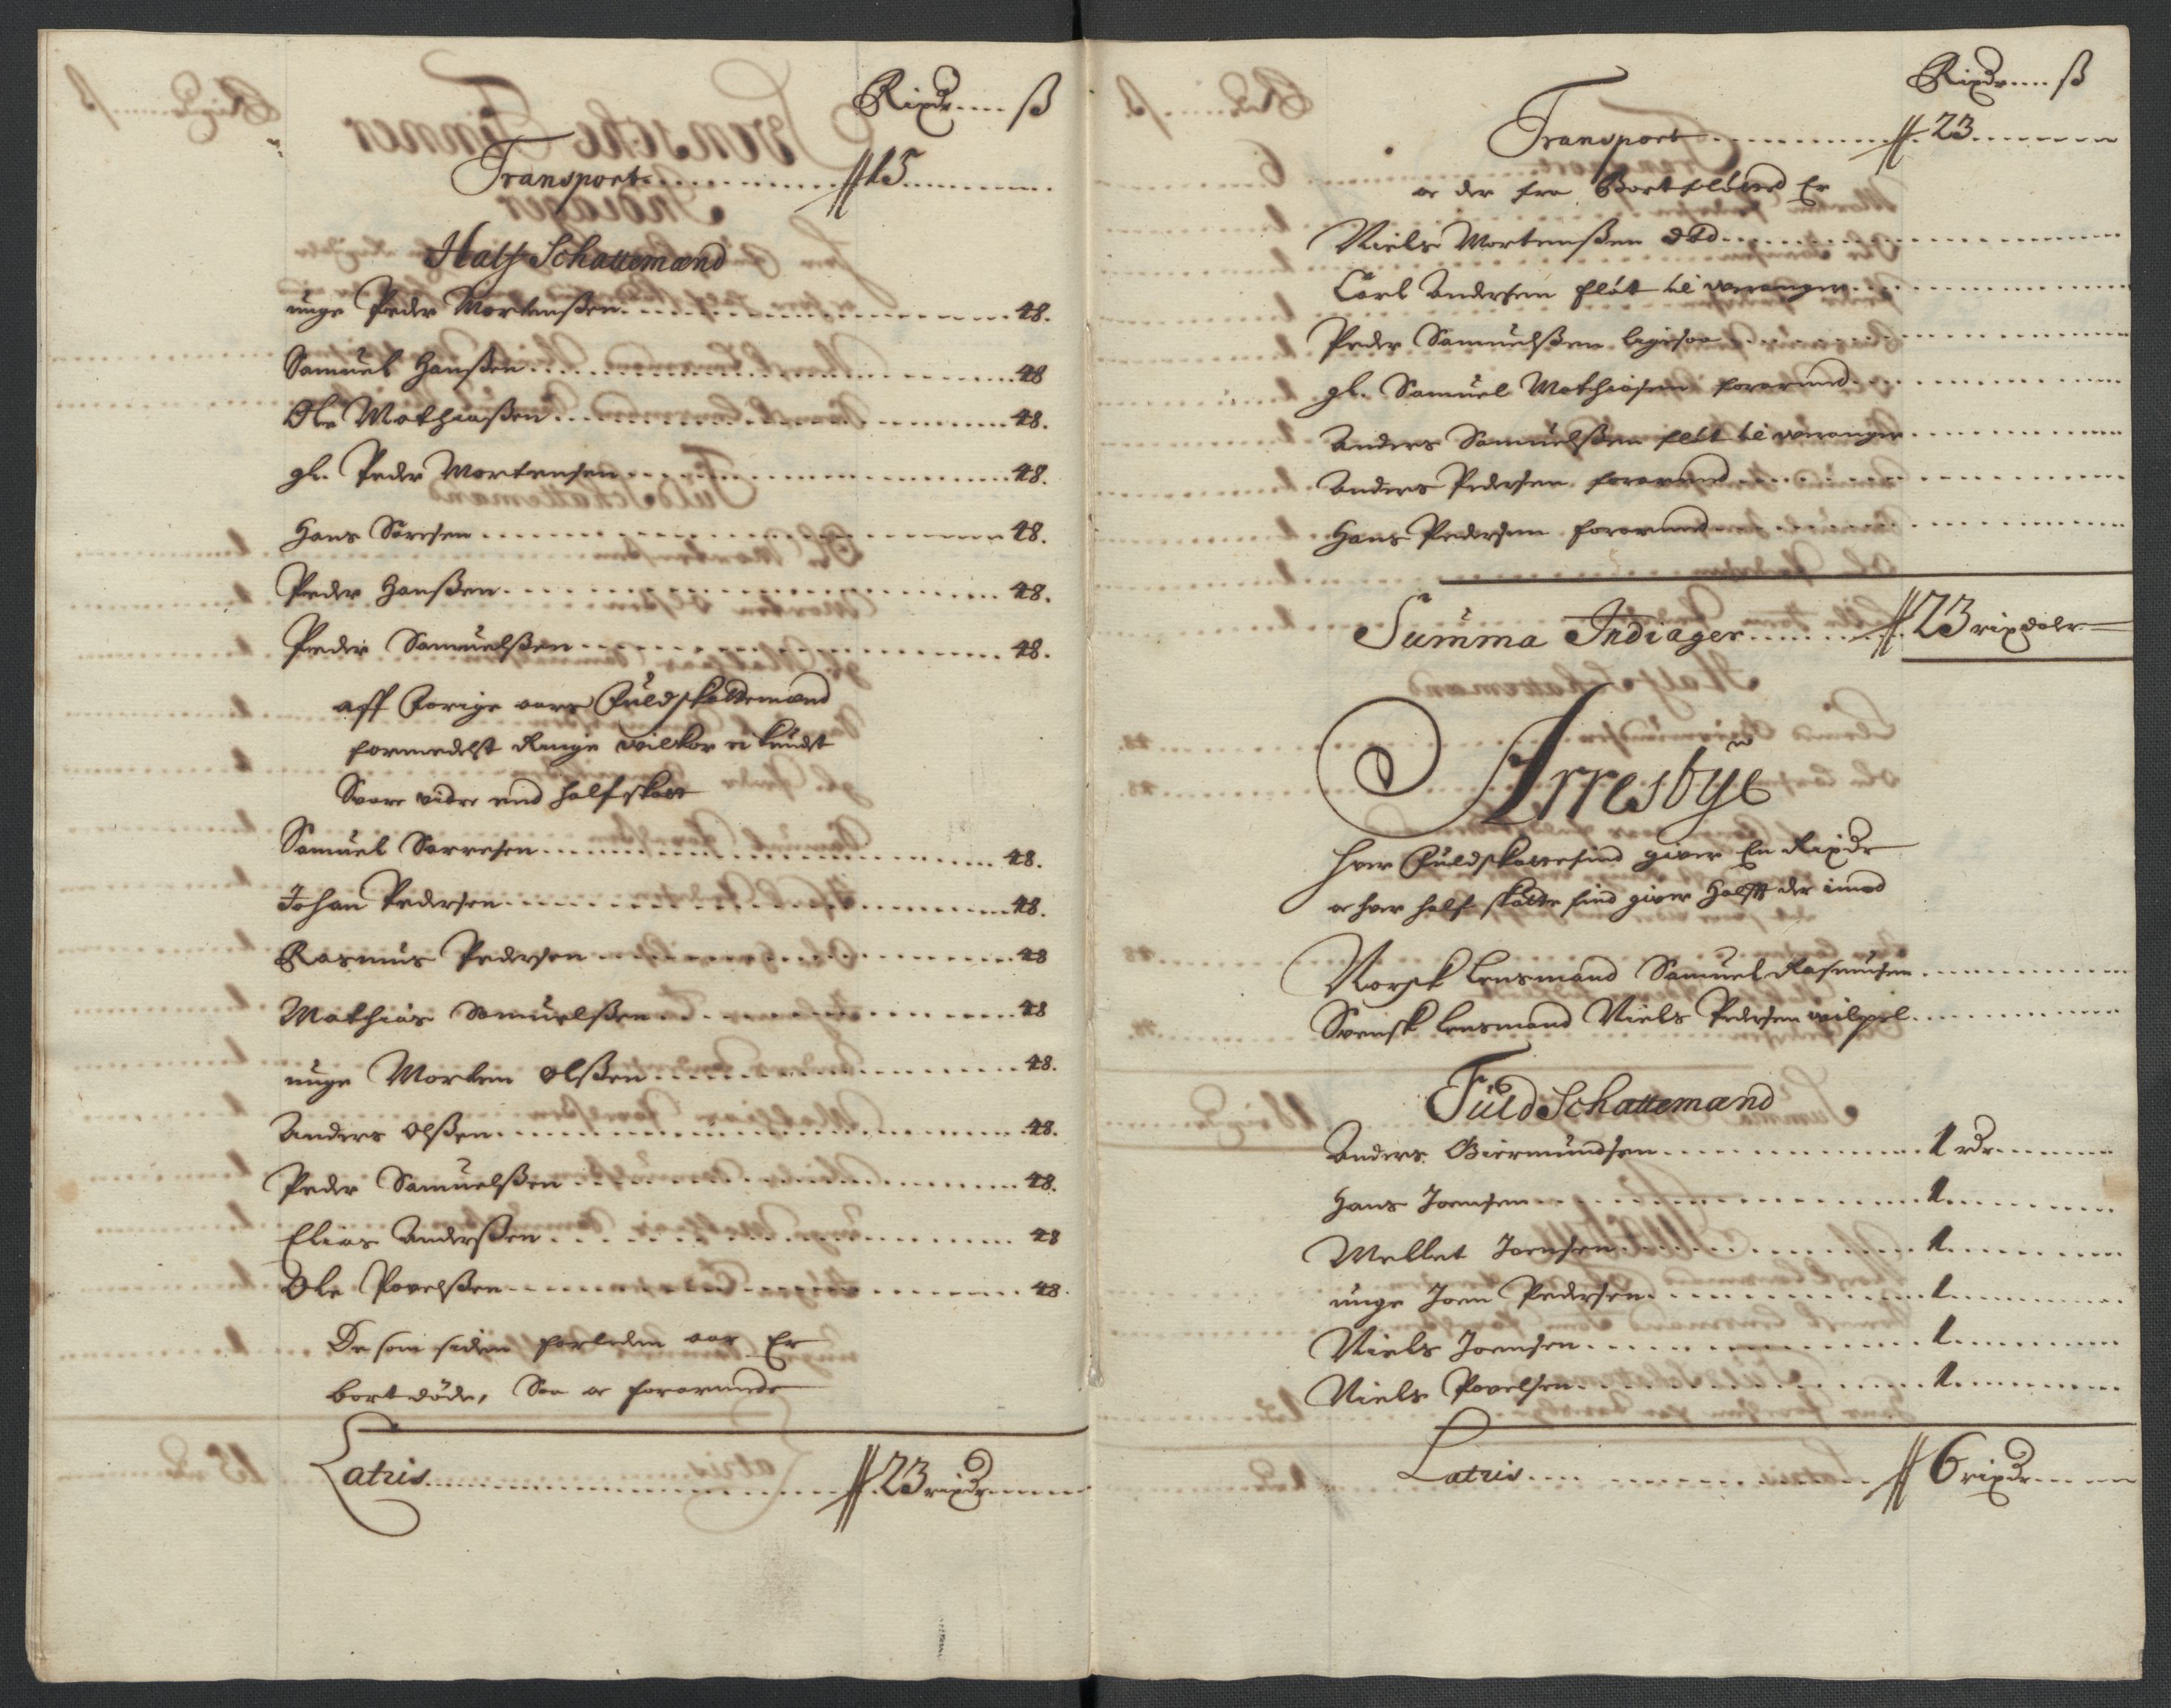 Rixdr .... ß
Transport ............ 15 ............
Half Schattemænd
unge Peder Mortensßen ............ 48.
Samuel Hanßen ............ 48
Ole Mathiasßen ............ 48.
gl. Peder Mortensen ............ 48.
Hans Saresen ............ 48.
Peder Hanßen ............ 48.
Peder Samuelsßen ............ 48.
aff Forige aars Fuldskattemænd
formedelst Ringe vilkor ei kundt
Svare videre end half skatt
Samuel Sarresen ............ 48.
Johan Pedersen ............ 48.
Rasmus Pedersen ............ 48
Mathias Samuelsßen ............ 48
unge Morten Olsßen ............ 48.
Anders Olsßen ............ 48.
Peder Samuelsßen ............ 48.
Elias Andersßen ............ 48
Ole Povelsßen ............ 48.
De som siden forleden aar Er
bortdöde, Saa oc forarmede
Latris ............ 23 rixdr ......
Rixdr .... ß
Transport ............ 23 ......
oc der fra Bortflötted Er
Niels Mortensßen död ............
Carl Andersen flöt til Waranger ............
Peder Samuelsßen ligesaa ............
gl. Samuel Mathiasen forarmed ............
Anders Samuelsßen flöt til Waranger ............
Anders Pedersen forarmed ............
Hans Pedersen forarmed ............
Summa Indiager ............ 23 rixdaler
Arresbye
Hver Fuldskattefind giver En Rixdr
oc hver half skatte find giver Halfft der imod
Norsk Lensmand Samuel Rasmusen ............
Svensk Lensmand Niels Pedersen ............
Fuld Schattemænd
Anders Giermundsen ............ 1 rdr ......
Hans Joensen ............ 1 ......
Mellet Joensen ............ 1 ......
unge Joen Pedersen ............ 1 ......
Niels Joensen ............ 1 ......
Niels Povelsen ............ 1 ......
Latris ............ 6 rixdr ......